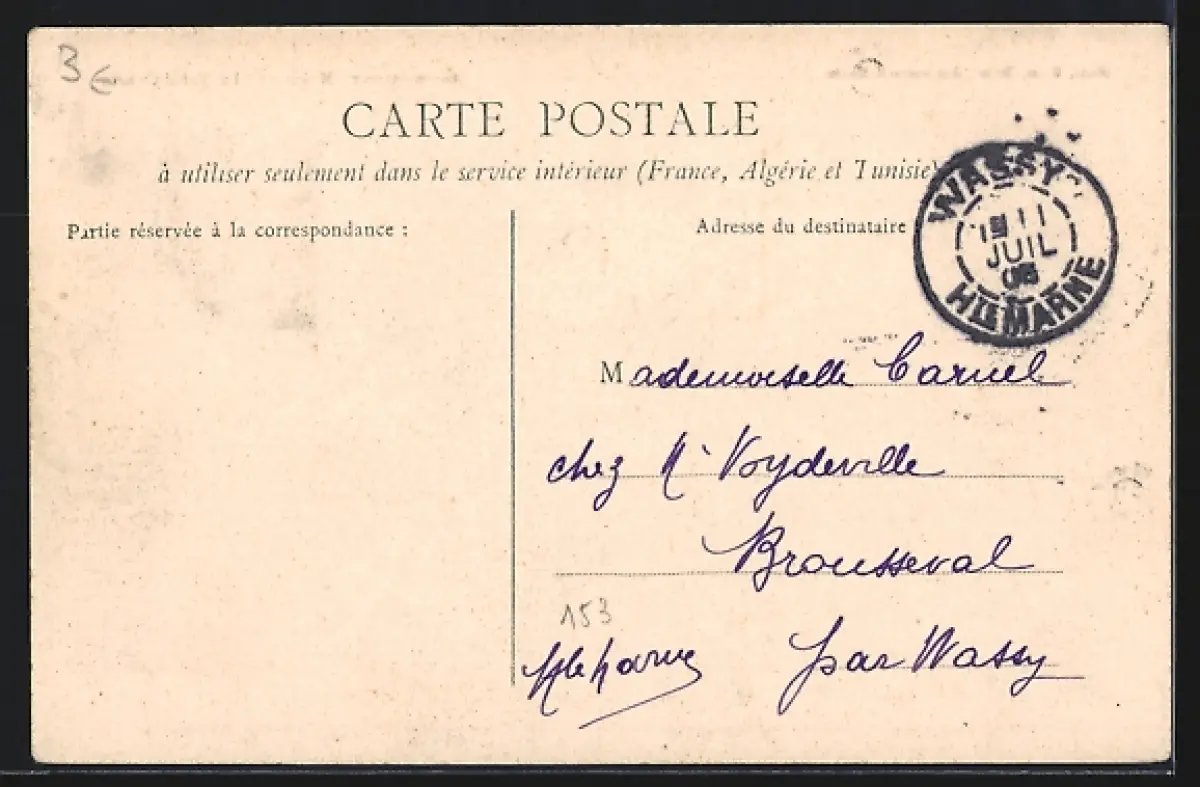 3 €
CARTE POSTALE
à utiliser seulement dans le service intérieur (France, Algérie et Tunisie)
Partie réservée à la correspondance :
Adresse du destinataire
WASSY
11
JUIL
HTE MARNE
Mademoiselle Carnel
chez Mr Voydeville
Brousseval
153
par Wassy
Hte Marne